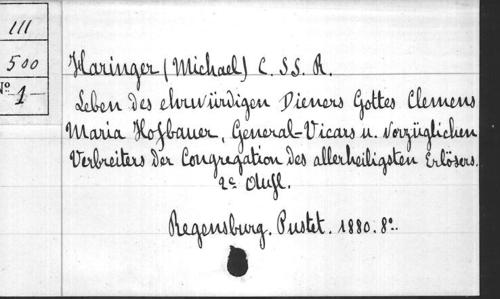 III
500
No 1
Haringer (Michael) C. SS. R.
Leben des ehrwürdigen Dieners Gottes Clemens
Maria Hofbauer, General-Vicars u. vorzüglichen
Verbreiters der Congregation des allerheiligsten Erlösers.
2e Aufl.
Regensburg. Pustet. 1880. 8o.